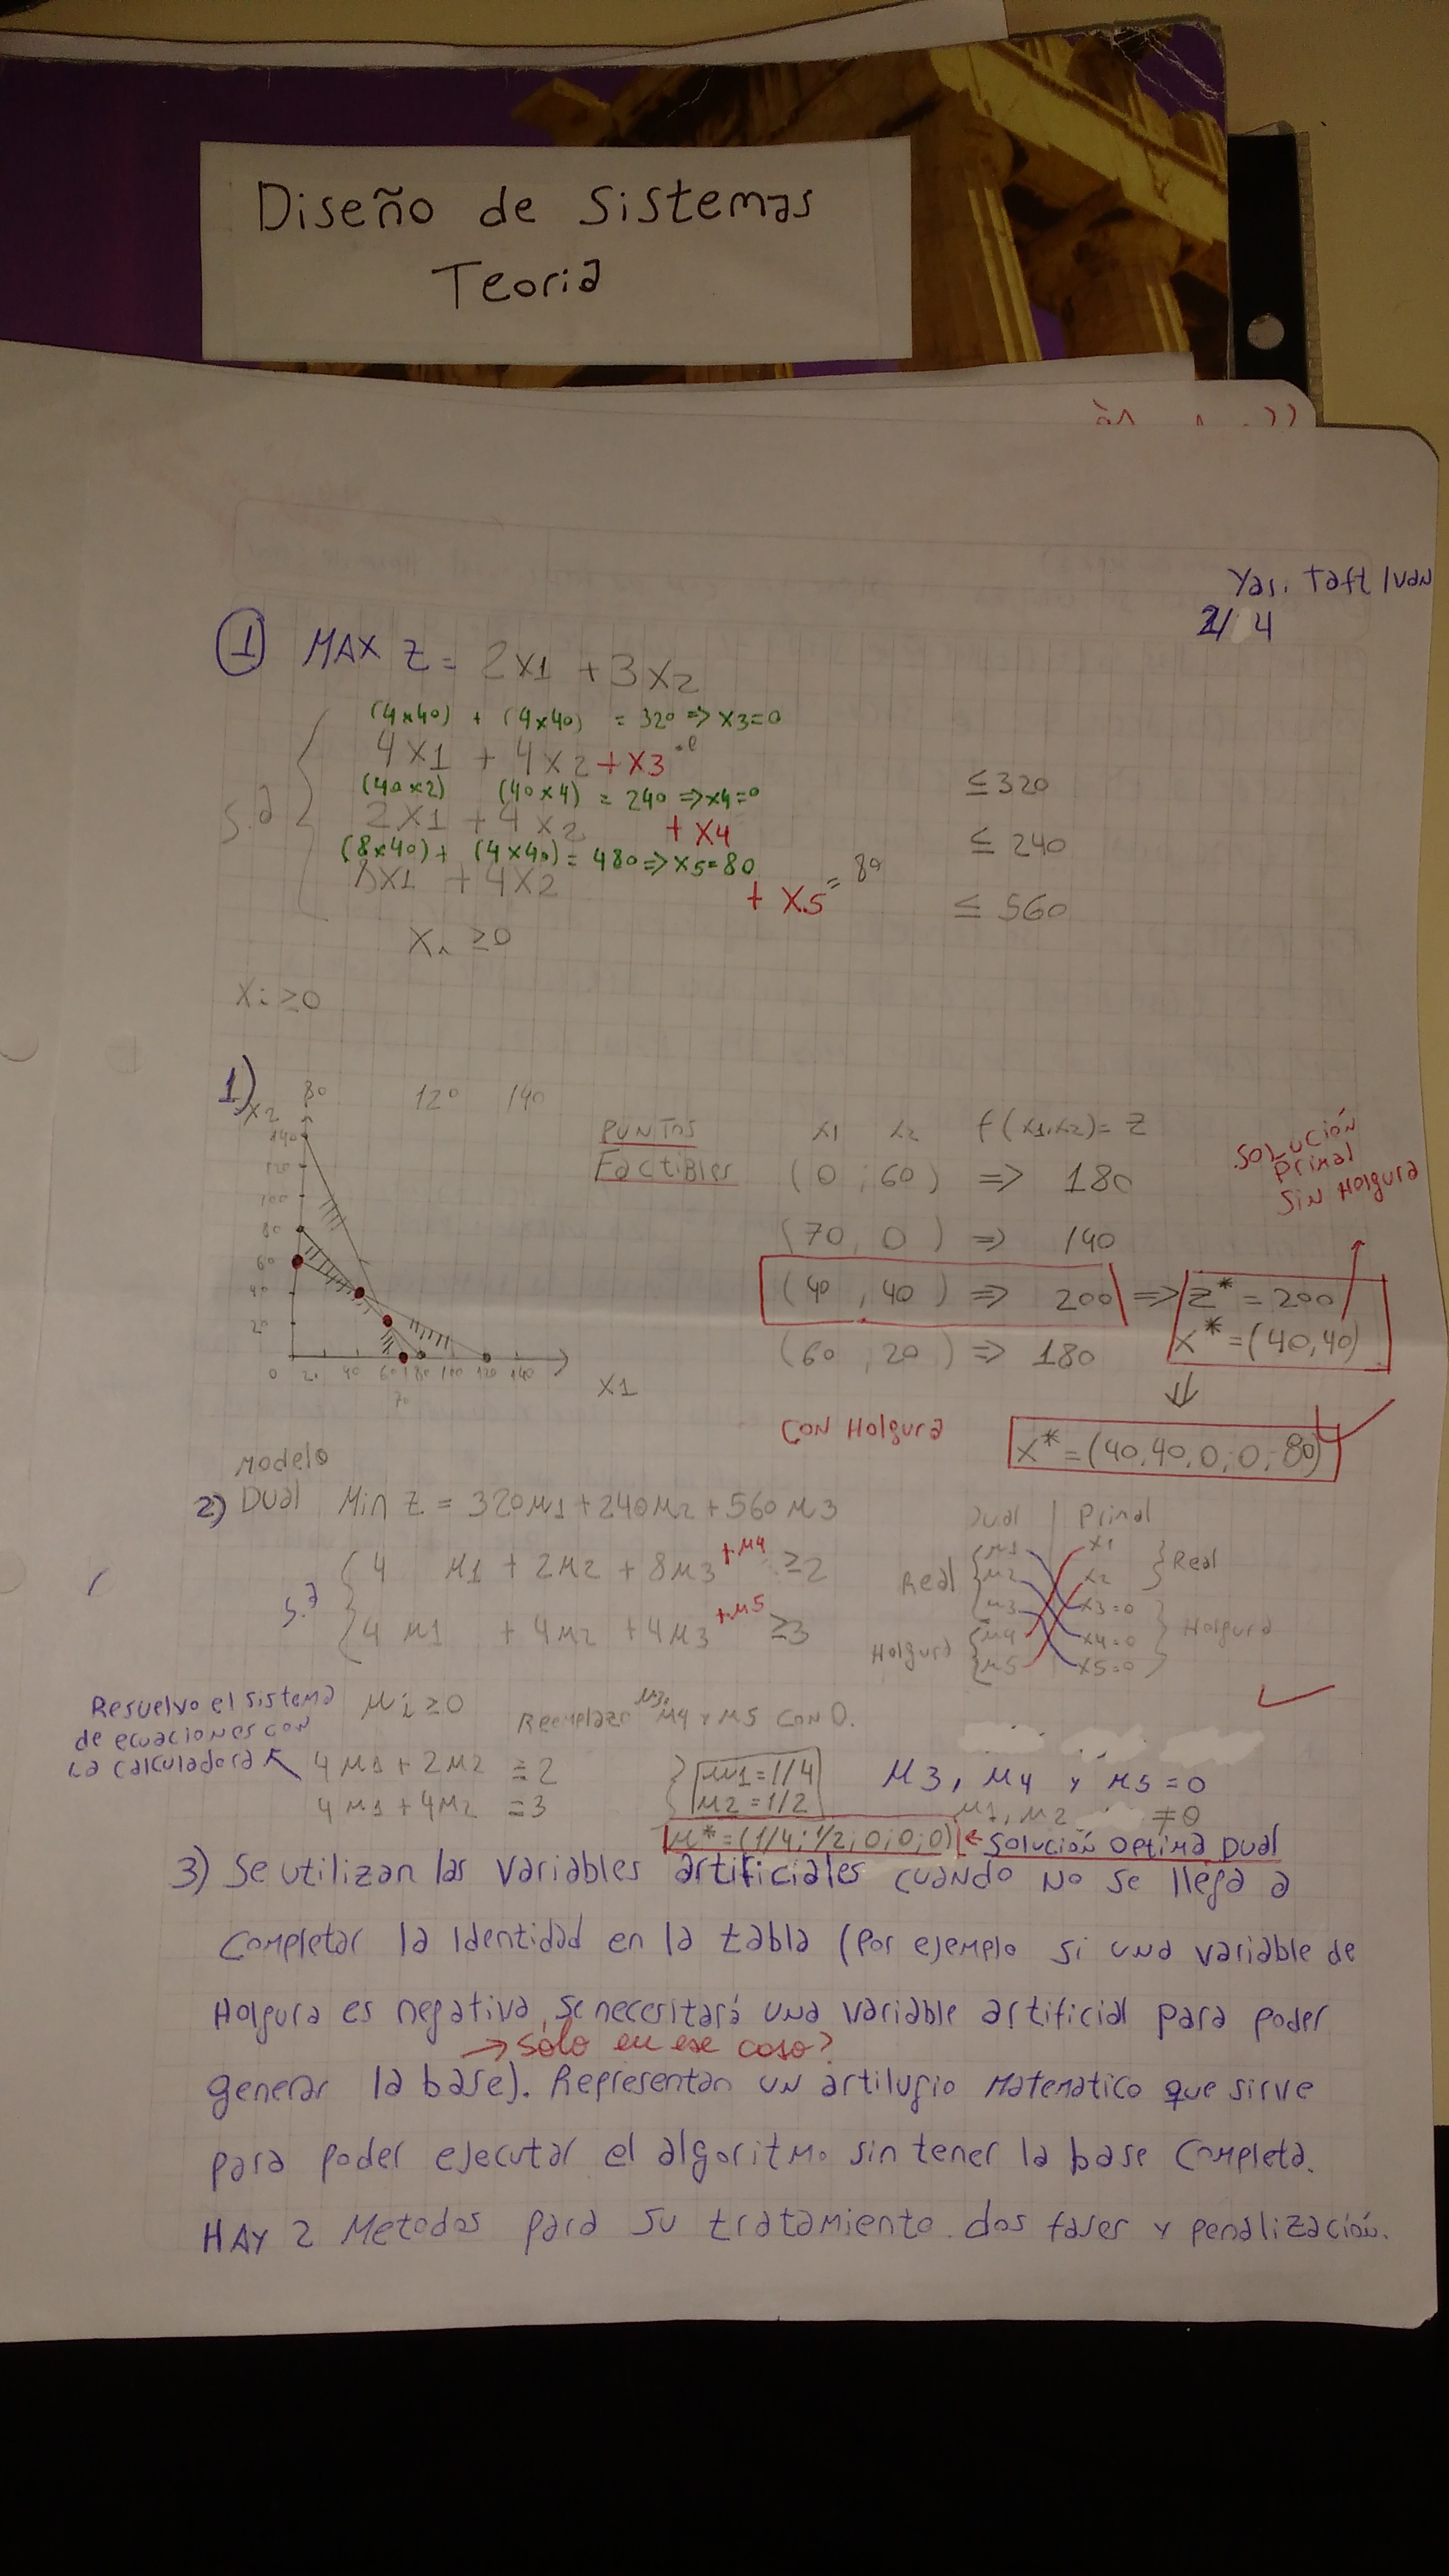 Diseño de Sistemas
Teoria
Yas. Taft Ivan
2/ 4
1 MAX Z = 2X1 + 3X2
(4x40) + (4x40) = 320 => X3=0
4X1 + 4X2 + X3 ≤ 320
(40x2) (40x4) = 240 => X4=0
2X1 + 4X2 + X4 ≤ 240
(8x40) + (4x40) = 480 => X5=80
8X1 + 4X2 + X5 = 80 ≤ 560
s.a
Xi ≥0
Xi ≥0
1)
80 120 140
X2
140
120
100
80
60
40
20
0 20 40 60 80 100 120 140
70
X1
PUNTOS X1 X2 f(X1,X2)= Z
FactiBles (0 ; 60) => 180
(70, 0) => 140
(40, 40) => 200 => Z* = 200
X* = (40,40)
(60, 20) => 180
SOLUCIÓN
Primal
SiN Holgura
CON Holgura X* = (40,40,0;0;80)
Modelo
2) Dual Min Z = 320μ1 + 240μ2 + 560μ3
s.a
4 μ1 + 2μ2 + 8μ3 +μ4 ≥2
4 μ1 + 4μ2 + 4μ3 +μ5 ≥3
Dual | Primal
Real μ1 X1 Real
μ2 X2
μ3 X3=0
Holgura μ4 X4=0 Holgura
μ5 X5=0
μi ≥0
Reemplazo μ3, μ4 y μ5 CON 0.
Resuelvo el sistema
de ecuaciones con
La calculadora
4μ1 + 2μ2 = 2
4μ1 + 4μ2 = 3
μ1 = 1/4
μ2 = 1/2
μ3, μ4 y μ5 = 0
μ1, μ2 ≠0
μ* = (1/4; 1/2; 0; 0; 0) ← Solución Optima Dual
3) Se utilizan las variables artificiales cuando no se llega a
completar la identidad en la tabla (Por ejemplo si una variable de
Holgura es negativa, se necesitará una variable artificial para poder
→ sólo en ese caso?
generar la base). Representan un artilugio matematico que sirve
para poder ejecutar el algoritmo sin tener la base completa.
HAY 2 Metodos para su tratamiento. dos fases y penalización.